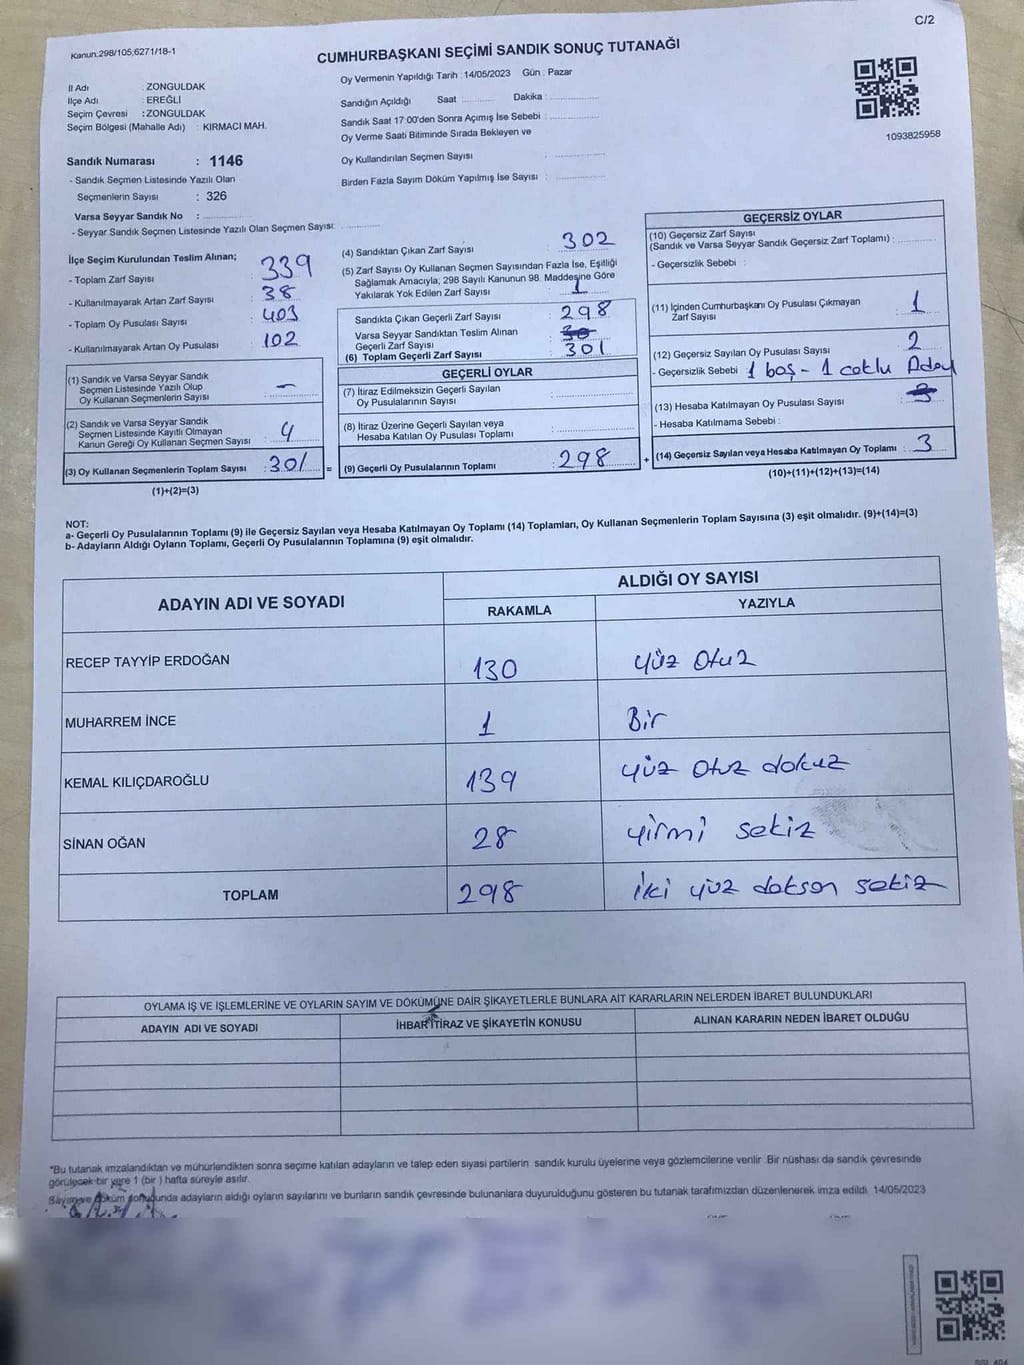 C/2
Kanun:298/105;6271/18-1
CUMHURBAŞKANI SEÇİMİ SANDIK SONUÇ TUTANAĞI
Oy Vermenin Yapıldığı Tarih : 14/05/2023 Gün : Pazar
İl Adı : ZONGULDAK
İlçe Adı : EREĞLİ
Seçim Çevresi : ZONGULDAK
Seçim Bölgesi (Mahalle Adı) : KIRMACI MAH.
Sandığın Açıldığı Saat ............ Dakika : ...............
Sandık Saat 17:00'den Sonra Açımış İse Sebebi : ...............
Oy Verme Saati Bitiminde Sırada Bekleyen ve
Oy Kullandırılan Seçmen Sayısı : ...............
Birden Fazla Sayım Döküm Yapılmış İse Sayısı : ...............
1093825958
Sandık Numarası : 1146
- Sandık Seçmen Listesinde Yazılı Olan
Seçmenlerin Sayısı : 326
Varsa Seyyar Sandık No : ...............
- Seyyar Sandık Seçmen Listesinde Yazılı Olan Seçmen Sayısı: ...............
İlçe Seçim Kurulundan Teslim Alınan;
- Toplam Zarf Sayısı : 339
- Kullanılmayarak Artan Zarf Sayısı : 38
- Toplam Oy Pusulası Sayısı : 403
- Kullanılmayarak Artan Oy Pusulası : 102
(1) Sandık ve Varsa Seyyar Sandık
Seçmen Listesinde Yazılı Olup
Oy Kullanan Seçmenlerin Sayısı : -
(2) Sandık ve Varsa Seyyar Sandık
Seçmen Listesinde Kayıtlı Olmayan
Kanun Gereği Oy Kullanan Seçmen Sayısı : 4
(3) Oy Kullanan Seçmenlerin Toplam Sayısı : 301 =
(1)+(2)=(3)
(4) Sandıktan Çıkan Zarf Sayısı : 302
(5) Zarf Sayısı Oy Kullanan Seçmen Sayısından Fazla İse, Eşitliği
Sağlamak Amacıyla, 298 Sayılı Kanunun 98. Maddesine Göre
Yakılarak Yok Edilen Zarf Sayısı : 1
Sandıkta Çıkan Geçerli Zarf Sayısı : 298
Varsa Seyyar Sandıktan Teslim Alınan
Geçerli Zarf Sayısı
(6) Toplam Geçerli Zarf Sayısı : 301
GEÇERLİ OYLAR
(7) İtiraz Edilmeksizin Geçerli Sayılan
Oy Pusulalarının Sayısı : ...............
(8) İtiraz Üzerine Geçerli Sayılan veya
Hesaba Katılan Oy Pusulası Toplamı : ...............
(9) Geçerli Oy Pusulalarının Toplamı : 298 +
GEÇERSİZ OYLAR
(10) Geçersiz Zarf Sayısı
(Sandık ve Varsa Seyyar Sandık Geçersiz Zarf Toplamı) : ...............
- Geçersizlik Sebebi :
(11) İçinden Cumhurbaşkanı Oy Pusulası Çıkmayan
Zarf Sayısı : 1
(12) Geçersiz Sayılan Oy Pusulası Sayısı : 2
- Geçersizlik Sebebi 1 boş - 1 coklu Aday
(13) Hesaba Katılmayan Oy Pusulası Sayısı :
- Hesaba Katılmama Sebebi :
(14) Geçersiz Sayılan veya Hesaba Katılmayan Oy Toplamı : 3
(10)+(11)+(12)+(13)=(14)
NOT:
a- Geçerli Oy Pusulalarının Toplamı (9) ile Geçersiz Sayılan veya Hesaba Katılmayan Oy Toplamı (14) Toplamları, Oy Kullanan Seçmenlerin Toplam Sayısına (3) eşit olmalıdır. (9)+(14)=(3)
b- Adayların Aldığı Oyların Toplamı, Geçerli Oy Pusulalarının Toplamına (9) eşit olmalıdır.
ADAYIN ADI VE SOYADI ALDIĞI OY SAYISI
RAKAMLA YAZIYLA
RECEP TAYYİP ERDOĞAN 130 yüz Otuz
MUHARREM İNCE 1 Bir
KEMAL KILIÇDAROĞLU 139 yüz Otuz dokuz
SİNAN OĞAN 28 yirmi sekiz
TOPLAM 298 iki yüz doksan sekiz
OYLAMA İŞ VE İŞLEMLERİNE VE OYLARIN SAYIM VE DÖKÜMÜNE DAİR ŞİKAYETLERLE BUNLARA AİT KARARLARIN NELERDEN İBARET BULUNDUKLARI
ADAYIN ADI VE SOYADI İHBAR İTİRAZ VE ŞİKAYETİN KONUSU ALINAN KARARIN NEDEN İBARET OLDUĞU
*Bu tutanak imzalandıktan ve mühürlendikten sonra seçime katılan adayların ve talep eden siyasi partilerin sandık kurulu üyelerine veya gözlemcilerine verilir. Bir nüshası da sandık çevresinde
görülecek bir yere 1 (bir ) hafta süreyle asılır.
Sayım ve döküm sonucunda adayların aldığı oyların sayılarını ve bunların sandık çevresinde bulunanlara duyurulduğunu gösteren bu tutanak tarafımızdan düzenlenerek imza edildi. 14/05/2023